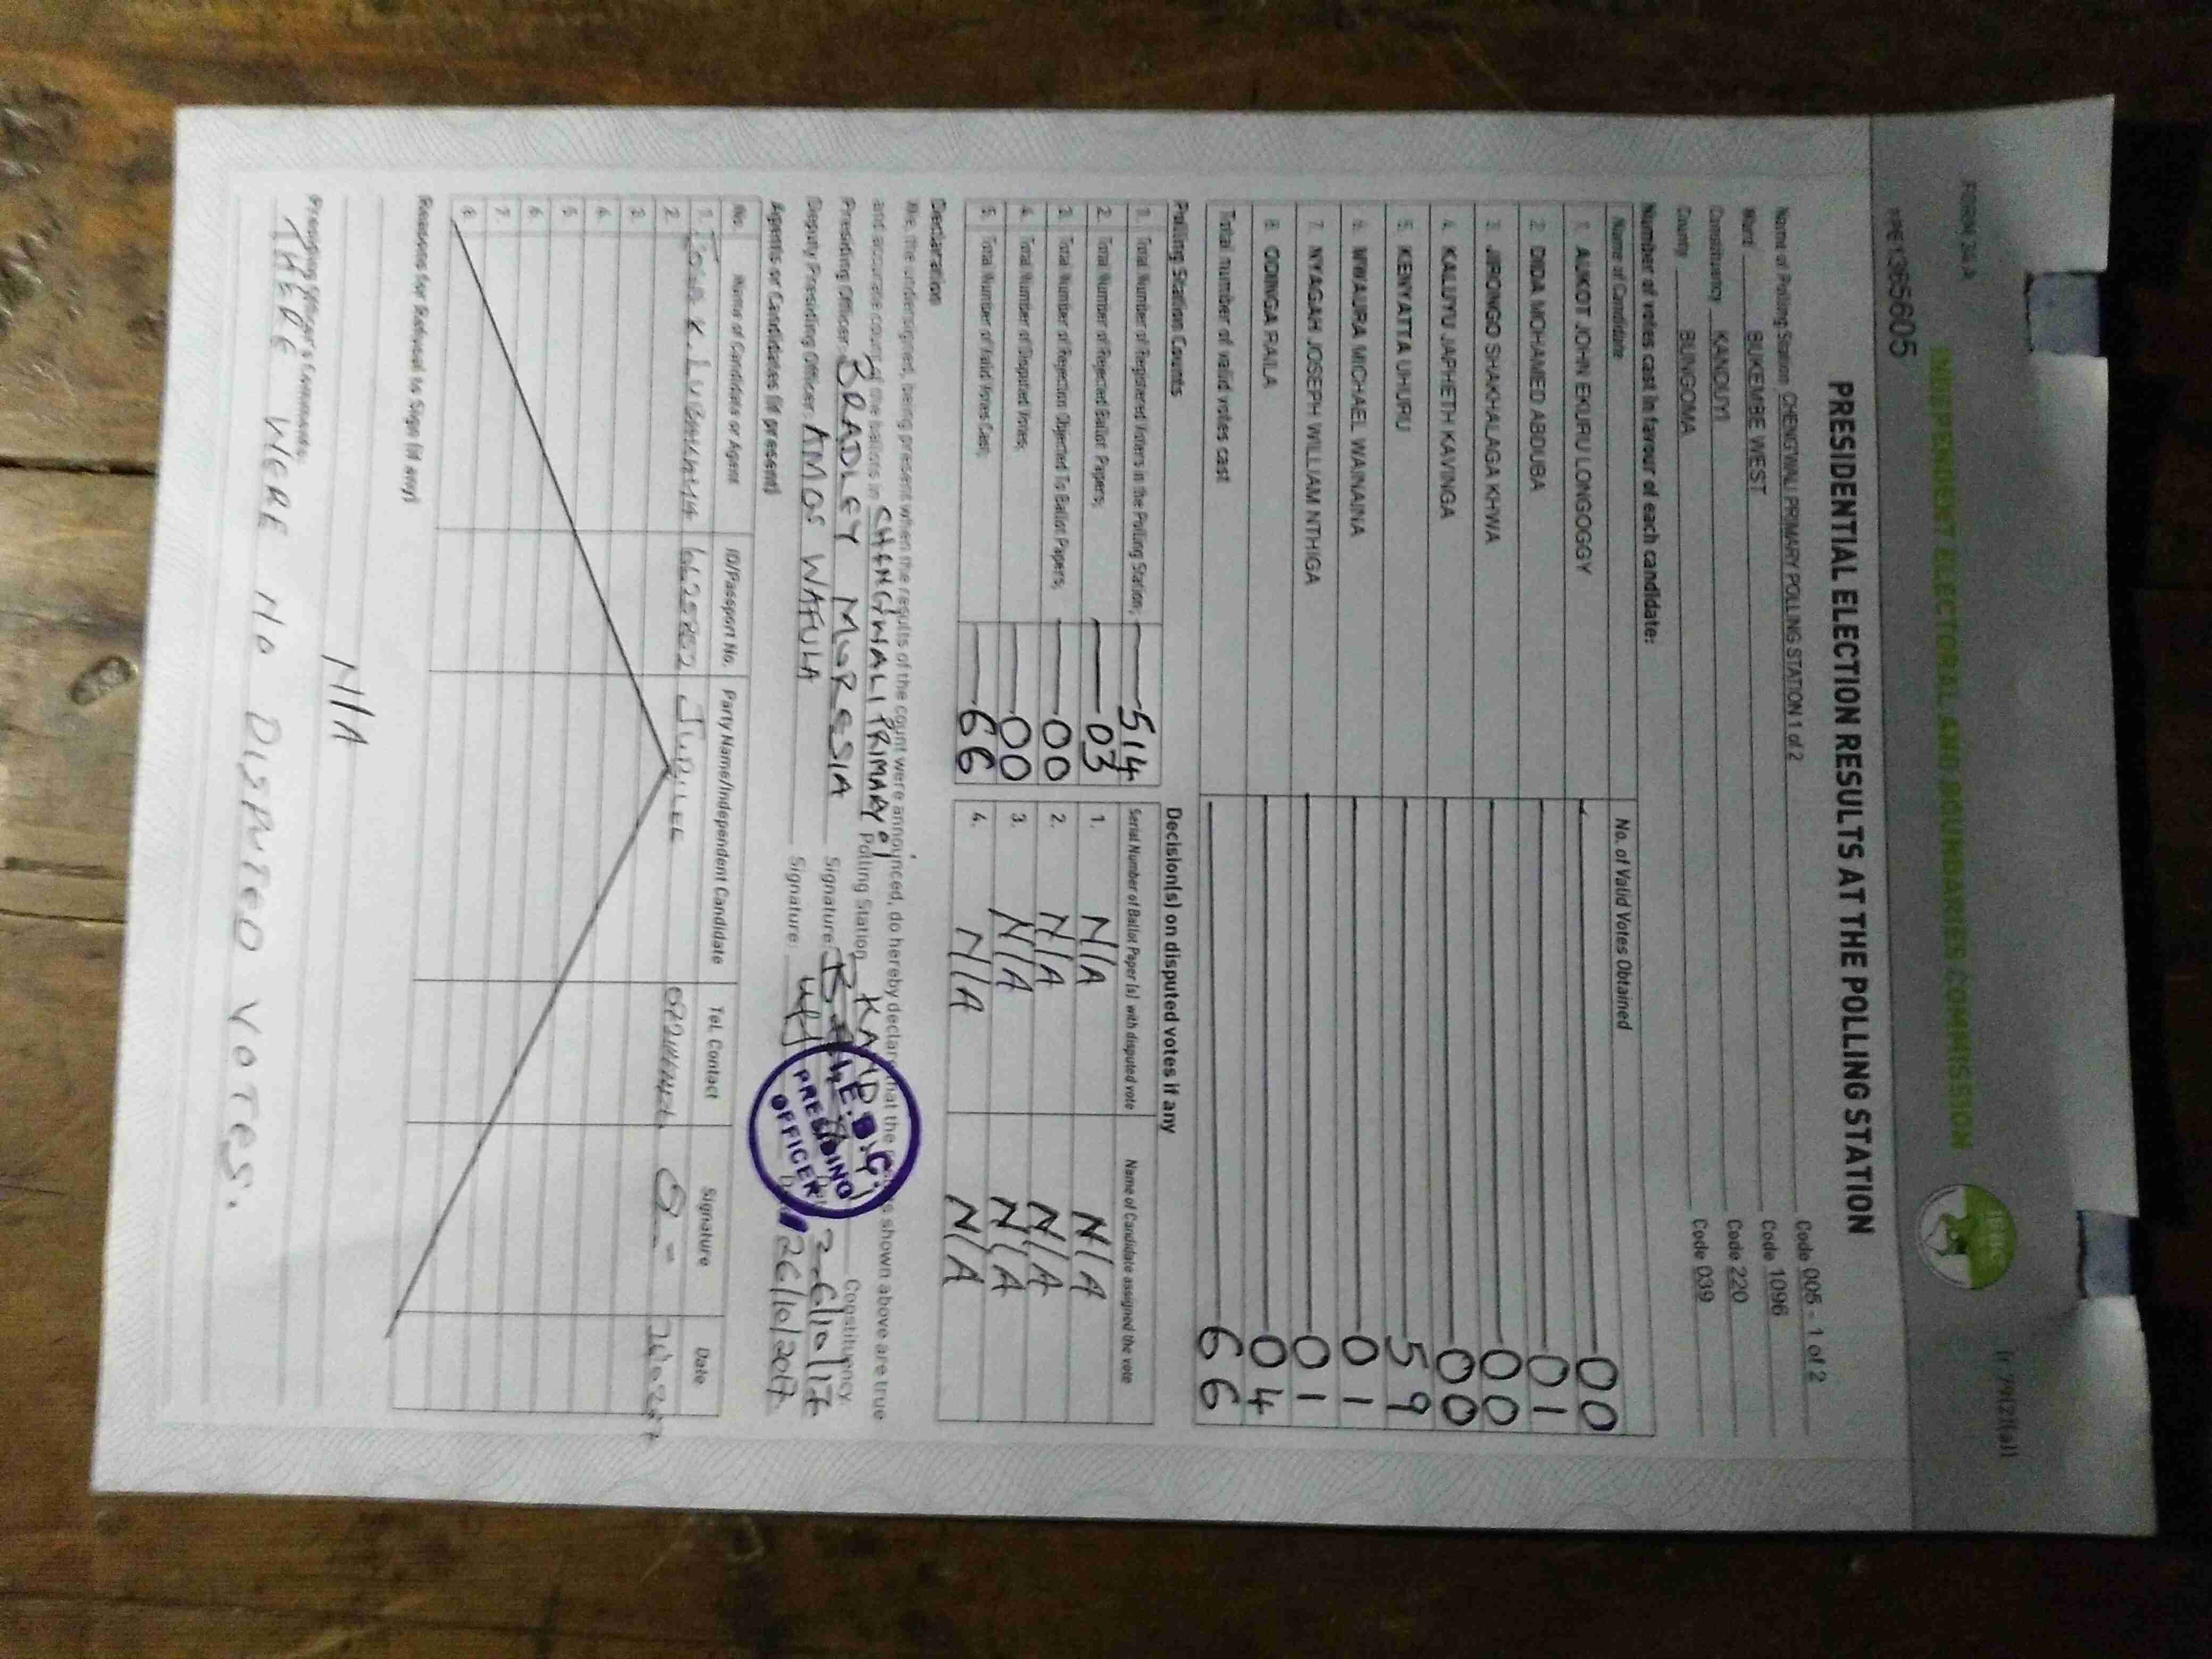 FORM 34A
(r 79(2)(a))
INDEPENDENT ELECTORAL AND BOUNDARIES COMMISSION
iebc
PPE1365605
PRESIDENTIAL ELECTION RESULTS AT THE POLLING STATION
Name of Polling Station CHENGWALI PRIMARY POLLING STATION 1 of 2 Code 005 - 1 of 2
Ward BUKEMBE WEST Code 1096
Constituency KANDUYI Code 220
County BUNGOMA Code 039
Number of votes cast in favour of each candidate:
Name of Candidate No. of Valid Votes Obtained
1. AUKOT JOHN EKURU LONGOGGY 00
2. DIDA MOHAMED ABDUBA 01
3. JIRONGO SHAKHALAGA KHWA 00
4. KALUYU JAPHETH KAVINGA 00
5. KENYATTA UHURU 59
6. MWAURA MICHAEL WAINAINA 01
7. NYAGAH JOSEPH WILLIAM NTHIGA 01
8. ODINGA RAILA 04
Total number of valid votes cast 66
Polling Station Counts
1. Total Number of Registered Voters in the Polling Station; 514
2. Total Number of Rejected Ballot Papers; 03
3. Total Number of Rejection Objected To Ballot Papers; 00
4. Total Number of Disputed Votes; 00
5. Total Number of Valid Votes Cast; 66
Decision(s) on disputed votes if any
Serial Number of Ballot Paper (s) with disputed vote Name of Candidate assigned the vote
1. N/A N/A
2. N/A N/A
3. N/A N/A
4. N/A N/A
Declaration
We, the undersigned, being present when the results of the count were announced, do hereby declare that the shown above are true
and accurate count of the ballots in CHENGWALI PRIMARY Polling Station KANDUYI Constituency
Presiding Officer: BRADLEY MORESIA Signature: 26/10/17
Deputy Presiding Officer: AMOS WAFULA Signature: 26/10/2017
I.E.B.C.
PRESIDING
OFFICER
Agents or Candidates (if present)
No. Name of Candidate or Agent ID/Passport No. Party Name/Independent Candidate Tel. Contact Signature Date
1.
2. JUBILEE
3.
4.
5.
6.
7.
8.
Reasons for Refusal to Sign (if any)
N/A
Presiding Officer's Comments:
THERE WERE NO DISPUTED VOTES.